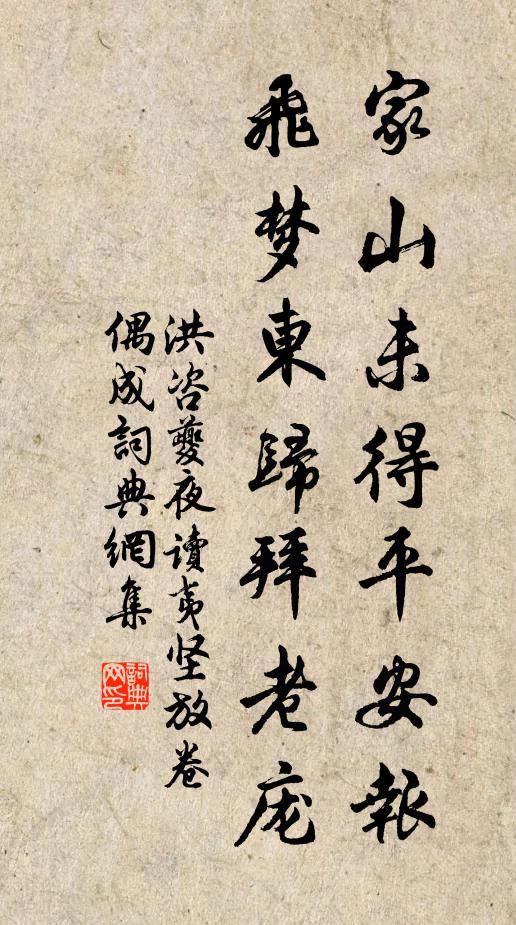 家山未得平安報
飛梦東歸拜老庞
洪咨夔夜讀夷坚放卷
偶成詞典網集
詞典
网印